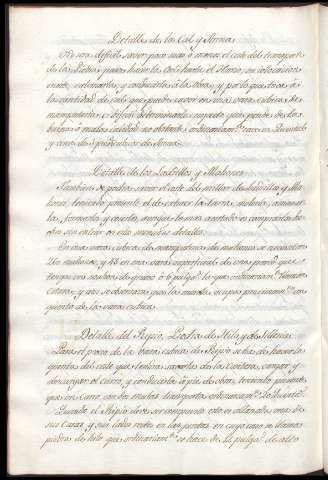 Detalle de la Cal y Arena
No sera dificil saver para mas o menos el coste del transporte
de la Piedra para hacer la Cal hasta el Horno, su colocacion
en el, calentarla, y conducirla a la obra; y por lo que toca a
la cantidad de cal que puede caver en una vara cubica de
manposteria, es dificil determinarla respecto que pende de la
buena o mala calidad no obstante, ordinariam.te entra un Quintal
y cerca de 3 pies cubicos de Arena.
Detalle de los Ladrillos y Mahones
Tambien se podra saver el coste del millar de Ladrillos y Ma-
hones, teniendo presente el de extraer la tierra, molerla, amasar-
la, formarlo y cocerlo, aunque lo mas acertado es comprarlo hecho
sin entrar en este menudo detalle.
En una vara cubica de manposteria de mahones se necesitan
216 mahones, y 43 en una vara superficial de una pared que
tenga un mahon de grueso ô 6 pulg.s lo que ordinariam.te llaman
Citara; y asi se observara que la mezcla ocupa proximam.te un
quinto de la vara cubica.
Detalle del Ripio, Piedra de Hilo, y de Silleria
Para el precio de la vara cubica de Ripio se ha de hacer la
quenta del coste que tendra sacarla de la Cantera, cargar y
descargar el carro, y conducirla a pie de obra, teniendo presente
que un Carro con dos mulas transporta ordinariam.te 20 Quint.s
Quando el Ripio deve ser compuesto esto es allanada una de
sus Caras, y sus lados rectos en las juntas en cuyo caso se llama
piedra de hilo que ordinariam.te se hace de 12 pulg.s de alto